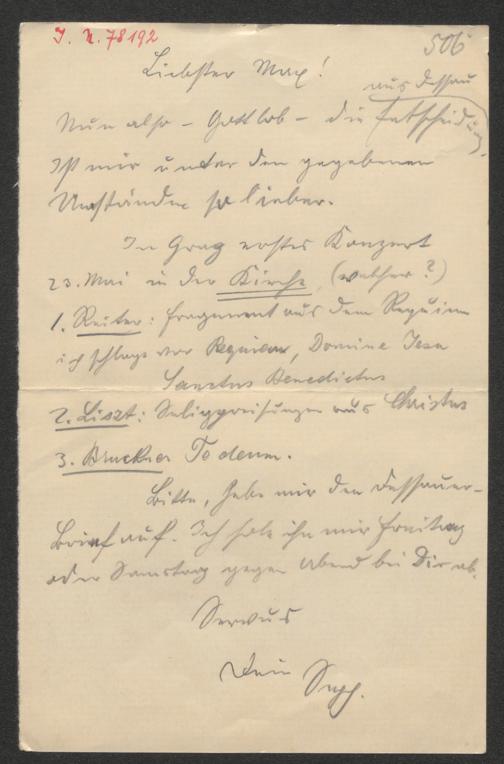 I. N. 78192
506
Liebster Max!
aus Dessau
Nun also – Gottlob – die Entscheidung
Ist mir unter den gegebenen
Umständen so lieber.
In Graz erstes Konzert
23. Mai in der Kirche, (welcher?)
1. Reiter: Fragment aus dem Requiem
ich schlage vor Requiem, Domine Jesu
Sanctus Benedictus
2. Liszt: Seligpreisungen aus Christus
3. Bruckner Te deum.
Bitte, hebe mir den Dessauer-
Brief auf. Ich hole ihn mir Freitag
oder Samstag gegen Abend bei Dir ab.
Servus
Dein